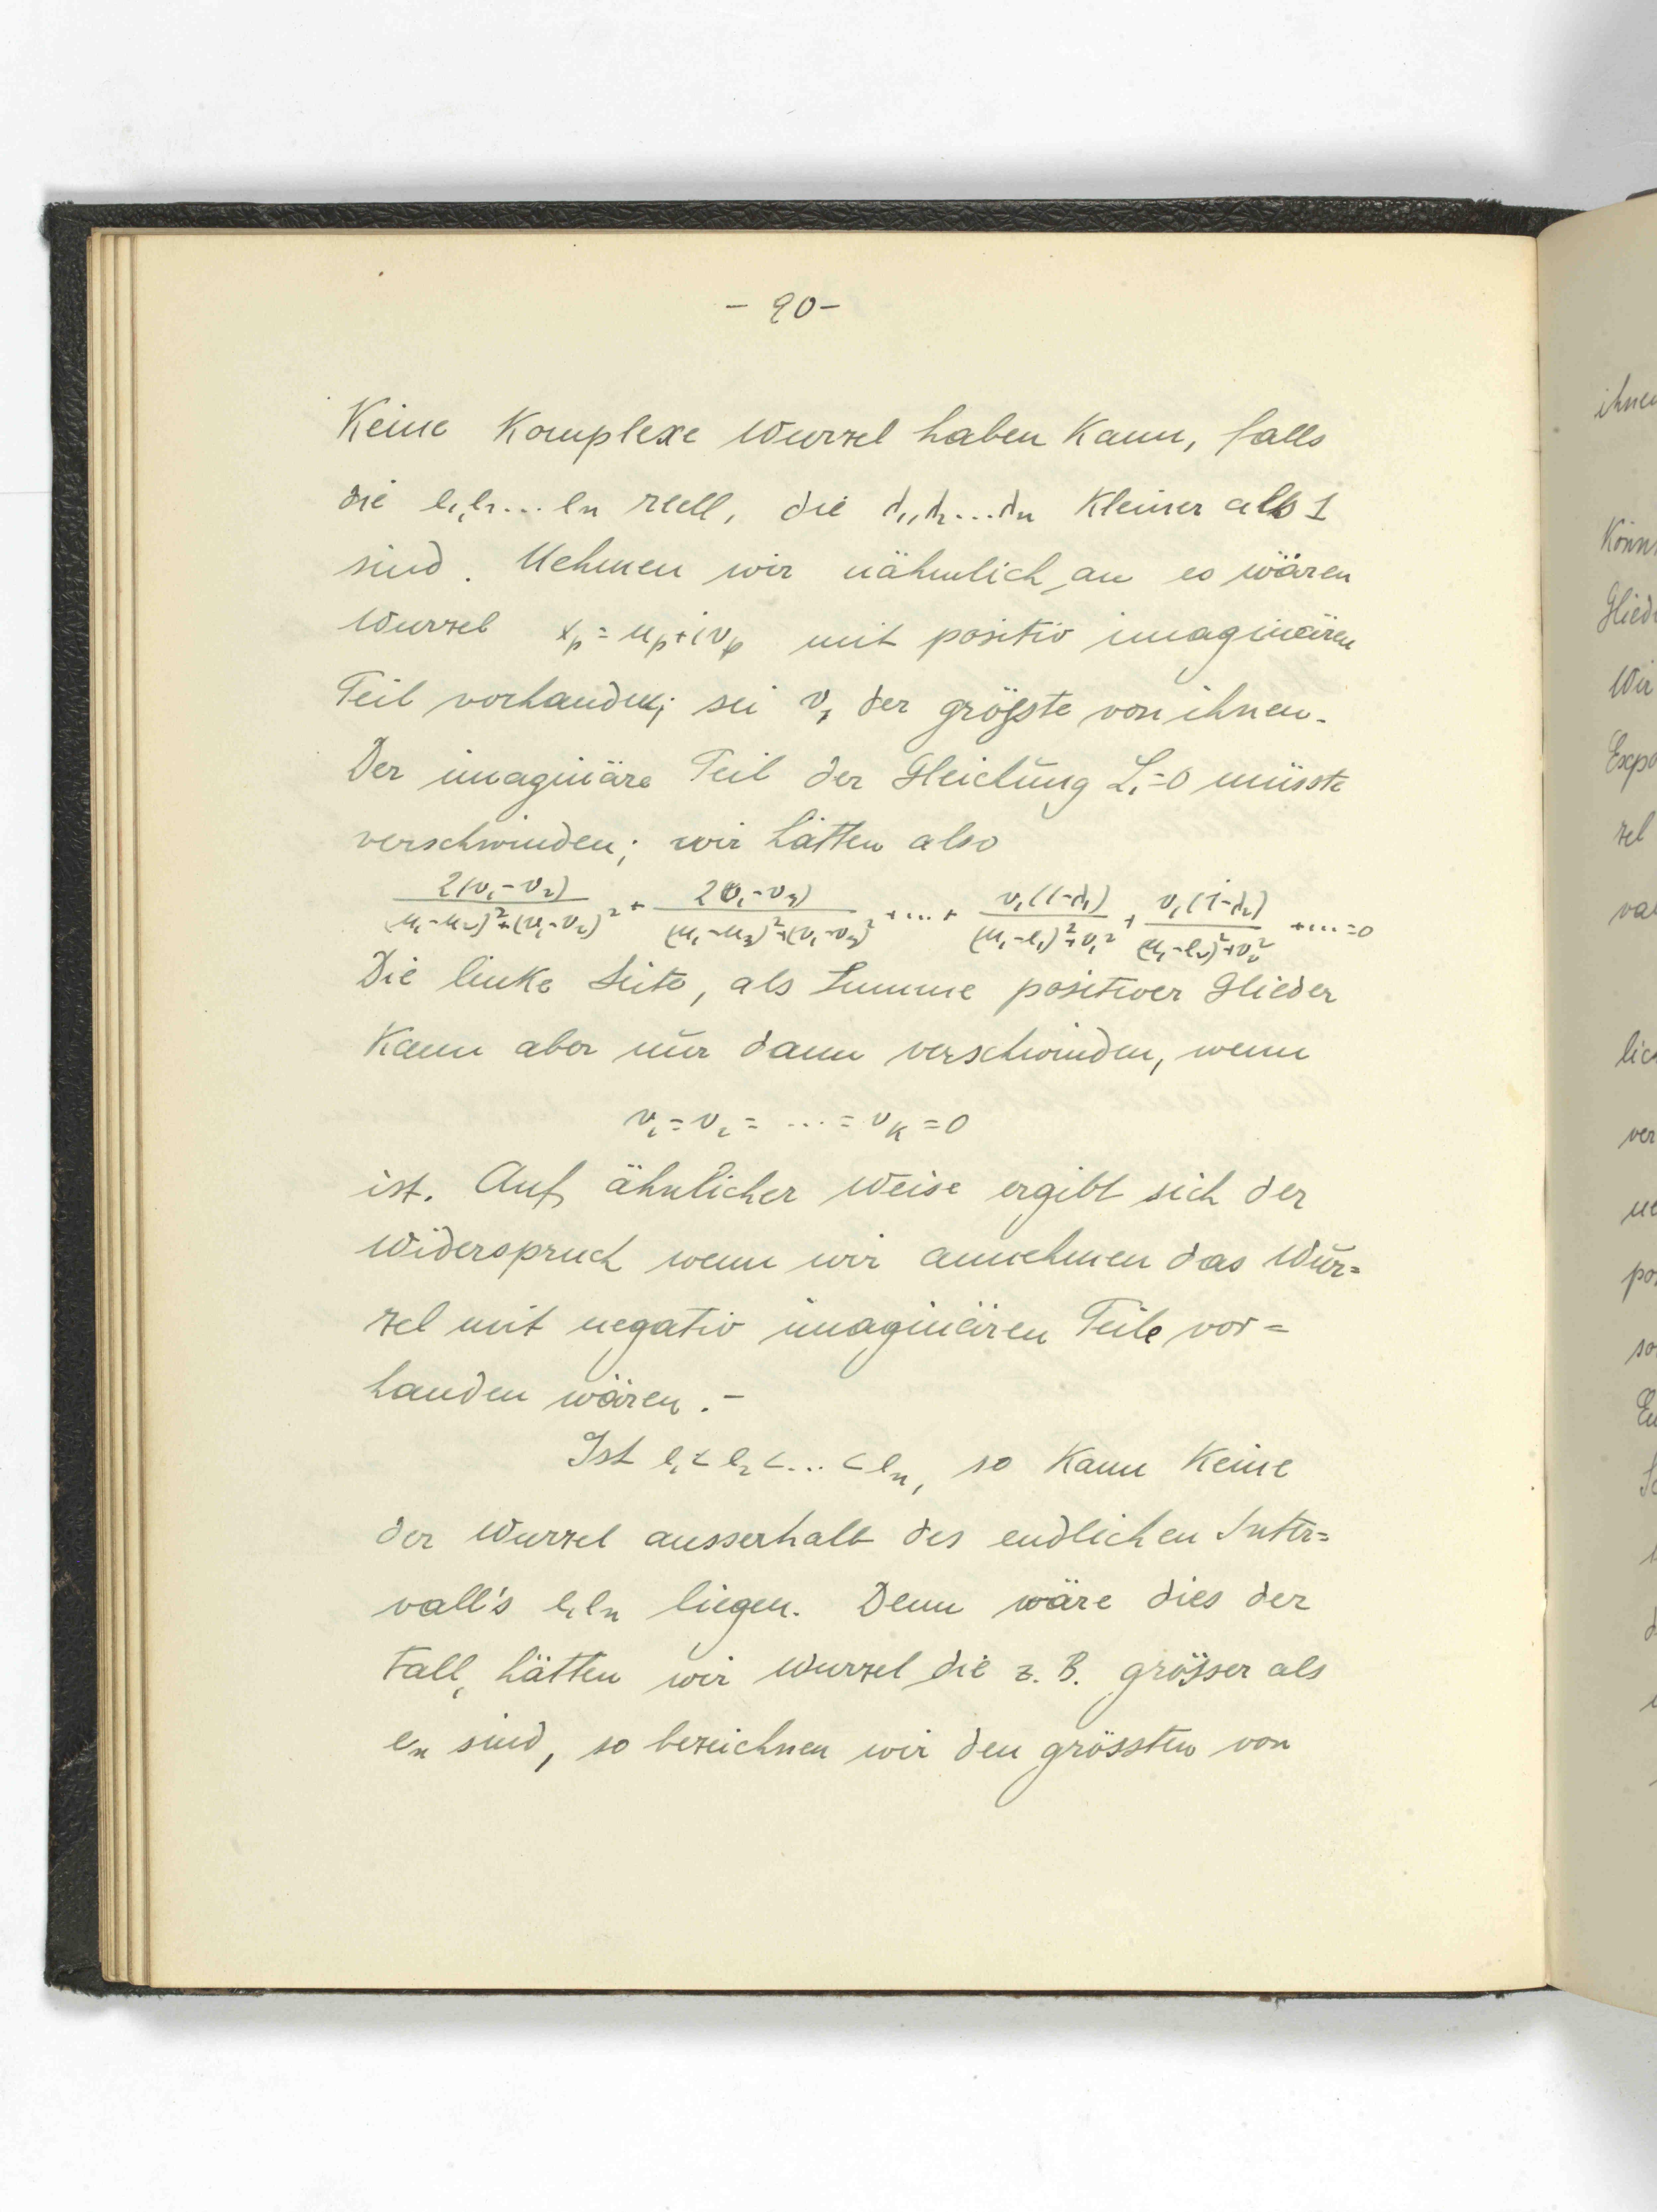 - 90 -
Keine Komplexe Wurzel haben Kann, falls
die l₁,l₂...ln reell, die d₁,d₂...dn Kleiner als 1
sind. Nehmen wir nähmlich, an es wären
Wurzel xₚ=uₚ+ivₚ mit positiv imaginären
Teil vorhanden; sei v₁ der größte von ihnen.
Der imaginäre Teil der Gleichung L₁=0 müsste
verschwinden; wir hätten also
2(v₁-v₂)/((u₁-u₂)²+(v₁-v₂)²) + 2(v₁-v₃)/((u₁-u₃)²+(v₁-v₃)²) +...+ v₁(1-d₁)/((u₁-l₁)²+v₁²) + v₁(1-d₂)/((u₁-l₂)²+v₂²) +...=0
Die linke Seite, als Summe positiver Glieder
Kann aber nur dann verschwinden, wenn
v₁=v₂= ... =vK=0
ist. Auf ähnlicher Weise ergibt sich der
Widerspruch wenn wir annehmen das Wur=
zel mit negativ imaginären Teile vor=
handen wären.-
Ist l₁<l₂<...<ln, so Kann Keine
der Wurzel ausserhalb des endlichen Inter=
vall's l₁ln liegen. Denn wäre dies der
Fall, hätten wir Wurzel die z. B. grösser als
ln sind, so bezeichnen wir den grössten von
ihnen
Könn
Glied
Wir
Expo
zel
lic
ver
po
so